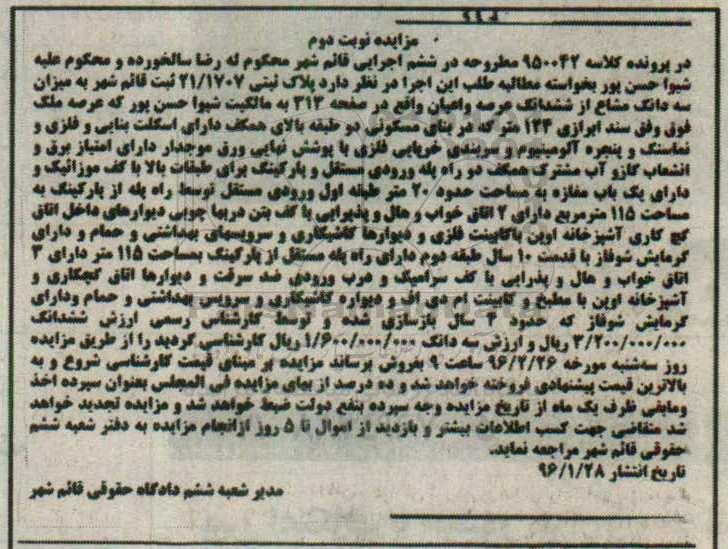 مزایده نوبت دوم
در پرونده کلاسه ۹۵۰۰۴۲ مطروحه در ششم اجرایی قائم شهر محکوم له رضا سالخورده و محکوم علیه
شیوا حسن پور بخواسته مطالبه طلب این اجرا در نظر دارد پلاک ثبتی ۲۱/۱۷۰۷ ثبت قائم شهر به میزان
سه دانگ مشاع از ششدانگ عرصه واعیان واقع در صفحه ۳۱۳ به مالکیت شیوا حسن پور که عرصه ملک
فوق وفق سند ابرازی ۱۲۴ متر که در بنای مسکونی دو طبقه بالای همکف دارای اسکلت بنایی و فلزی و
نماسنگ و پنجره آلومینیوم و سربندی خرپایی فلزی با پوشش نهایی ورق موجدار دارای امتیاز برق و
انشعاب گازو آب مشترک همکف دو راه پله ورودی مستقل و پارکینگ برای طبقات بالا با کف موزائیک و
دارای یک باب مغازه به مساحت حدود ۲۰ متر طبقه اول ورودی مستقل توسط راه پله از پارکینگ به
مساحت ۱۱۵ مترمربع دارای ۲ اتاق خواب و هال و پذیرایی با کف بتن دربها چوبی دیوارهای داخل اتاق
گچ کاری آشپزخانه اوپن باکابینت فلزی و دیوارها کاشیکاری و سرویسهای بهداشتی و حمام و دارای
گرمایش شوفاژ با قدمت ۱۰ سال طبقه دوم دارای راه پله مستقل از پارکینگ بمساحت ۱۱۵ متر دارای ۳
اتاق خواب و هال و پذرایی با کف سرامیک و درب ورودی ضد سرقت و دیوارها اتاق گچکاری و
آشپزخانه اوپن با مطبخ و کابینت ام دی اف و دیواره کاشیکاری و سرویس بهداشتی و حمام ودارای
گرمایش شوفاژ که حدود ۴ سال بازسازی شده و توسط کارشناس رسمی ارزش ششدانگ
۳/۲۰۰/۰۰۰/۰۰۰ ریال و ارزش سه دانگ ۱/۶۰۰/۰۰۰/۰۰۰ ریال کارشناسی گردید را از طریق مزایده
روز سه‌شنبه مورخه ۹۶/۲/۲۶ ساعت ۹ بفروش برساند مزایده بر مبنای قیمت کارشناسی شروع و به
بالاترین قیمت پیشنهادی فروخته خواهد شد و ده درصد از بهای مزایده فی المجلس بعنوان سپرده اخذ
ومابقی ظرف یک ماه از تاریخ مزایده وجه سپرده بنفع دولت ضبط خواهد شد و مزایده تجدید خواهد
شد متقاضی جهت کسب اطلاعات بیشتر و بازدید از اموال تا ۵ روز ازانجام مزایده به دفتر شعبه ششم
حقوقی قائم شهر مراجعه نماید.
تاریخ انتشار ۹۶/۱/۲۸
مدیر شعبه ششم دادگاه حقوقی قائم شهر